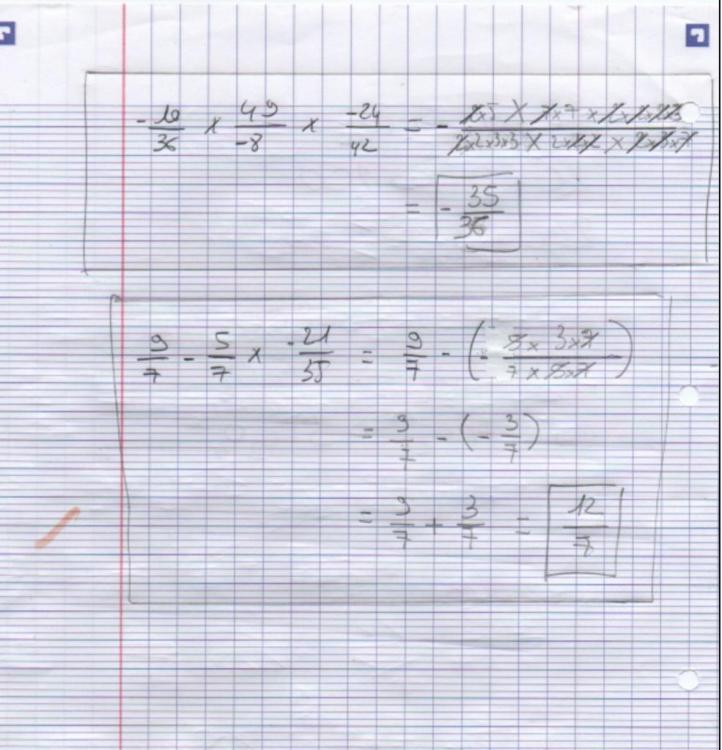 -10/36 × 49/-8 × -24/42 = - (2×5 × 7×7 × 2×2×2×3)/(2×2×3×3 × 2×2×2 × 2×3×7)
= - 35/36
9/7 - 5/7 × -21/35 = 9/7 - (- (5 × 3×7)/(7 × 5×7))
= 9/7 - (- 3/7)
= 9/7 + 3/7 = 12/7